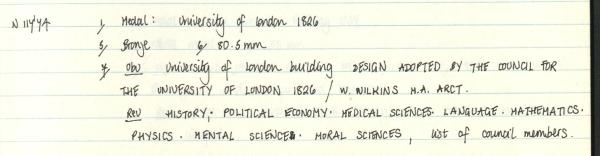 N 11444 1, Medal: University of London 1826
5, Bronze 6, 80.5mm
7, Obv University of London building DESIGN ADOPTED BY THE COUNCIL FOR
THE UNIVERSITY OF LONDON 1826 / W. WILKINS M.A. ARCT.
Rev HISTORY, · POLITICAL ECONOMY · MEDICAL SCIENCES · LANGUAGE · MATHEMATICS ·
PHYSICS · MENTAL SCIENCE · MORAL SCIENCES, list of council members.